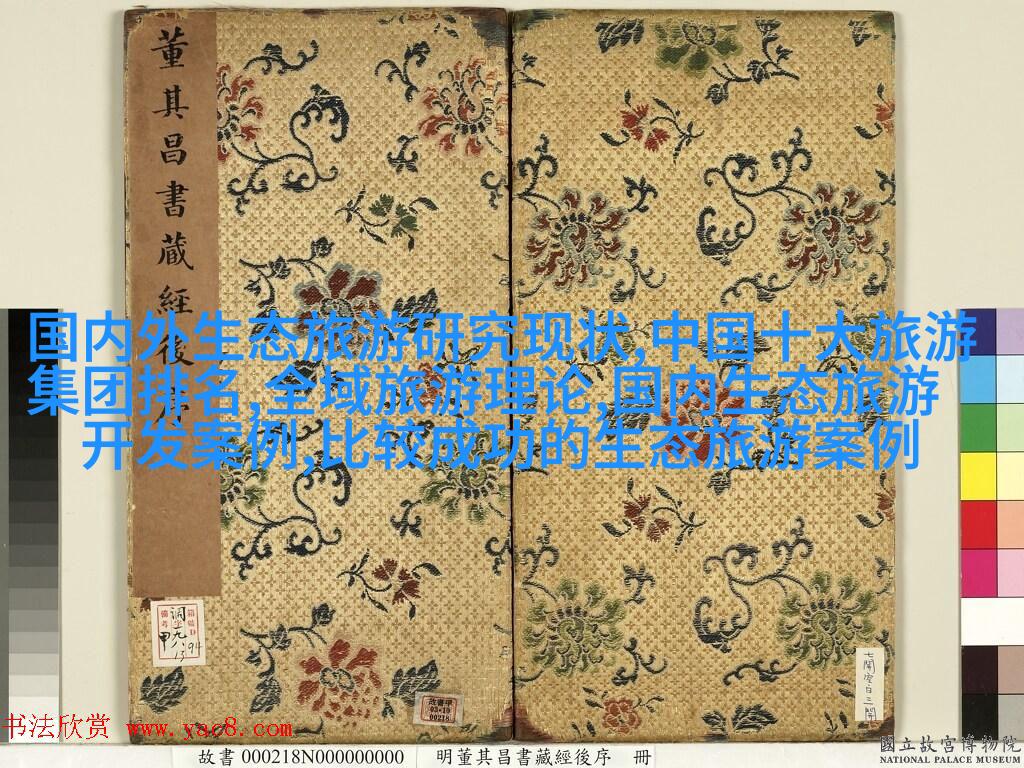 董其昌書藏經後序
国内外生态旅游研究现状,中国十大旅游
集团排名,全域旅游理论,国内生态旅游
开发案例,比较成功的生态旅游案例
甲
94
故書甲
03-10
00218
七開空白三開
书法欣赏 www.yac8.com
故書 000218N000000000 明董其昌書藏經後序 冊
國立故宮博物院
NATIONAL PALACE MUSEUM